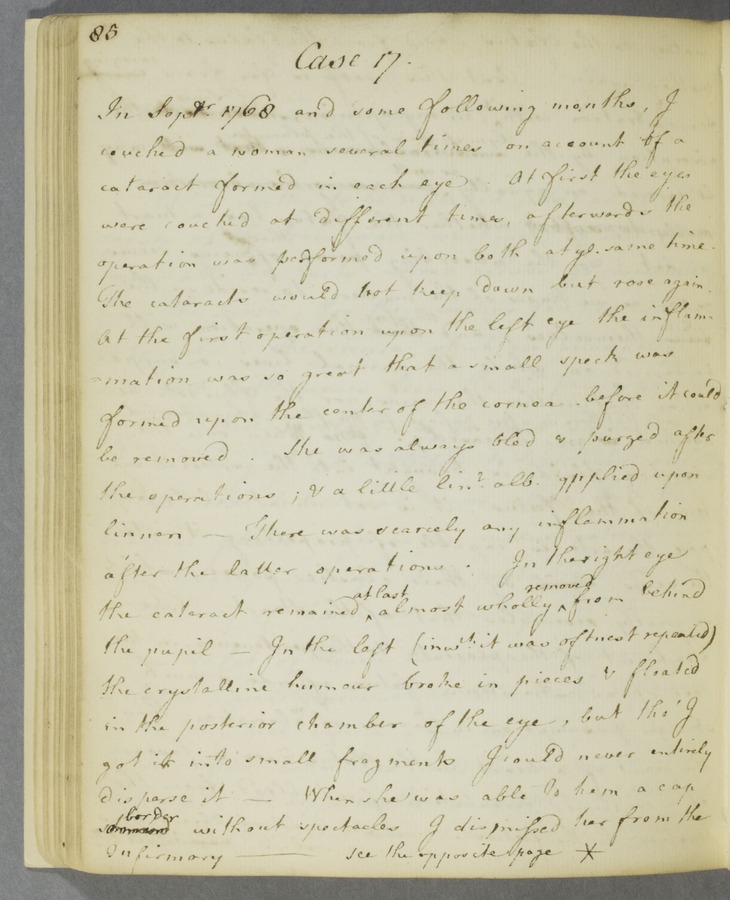 85
Case 17.
In Septr. 1768 and some following months, I
couched a woman several times on account of a
cataract formed in each eye. At first the eyes
were couched at different times, afterwards the
operation was performed upon both at ye. same time.
The cataracts would not keep down but rose again.
At the first operation upon the left eye the inflam-
-mation was so great that a small speck was
formed upon the center of the cornea before it could
be removed. She was always bled & purged after
the operations; & a little lint. alb. applied upon
linnen — There was scarcely any inflammation
after the latter operations. In the right eye
at last removed
the cataract remained ^ almost wholly ^ from behind
the pupil — In the left (in wch. it was oftnest repeated)
the crystalline humour broke in pieces & floated
in the posterior chamber of the eye, but tho' I
got it into small fragments I could never entirely
disperse it — When she was able to hem a cap
border
without spectacles I dismissed her from the
Infirmary — see the opposite page X